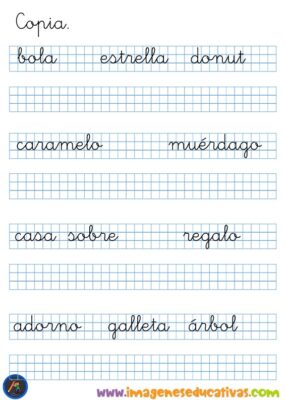 Copia.
bola estrella donut
caramelo muérdago
casa sobre regalo
adorno galleta árbol
www.imageneseducativas.com